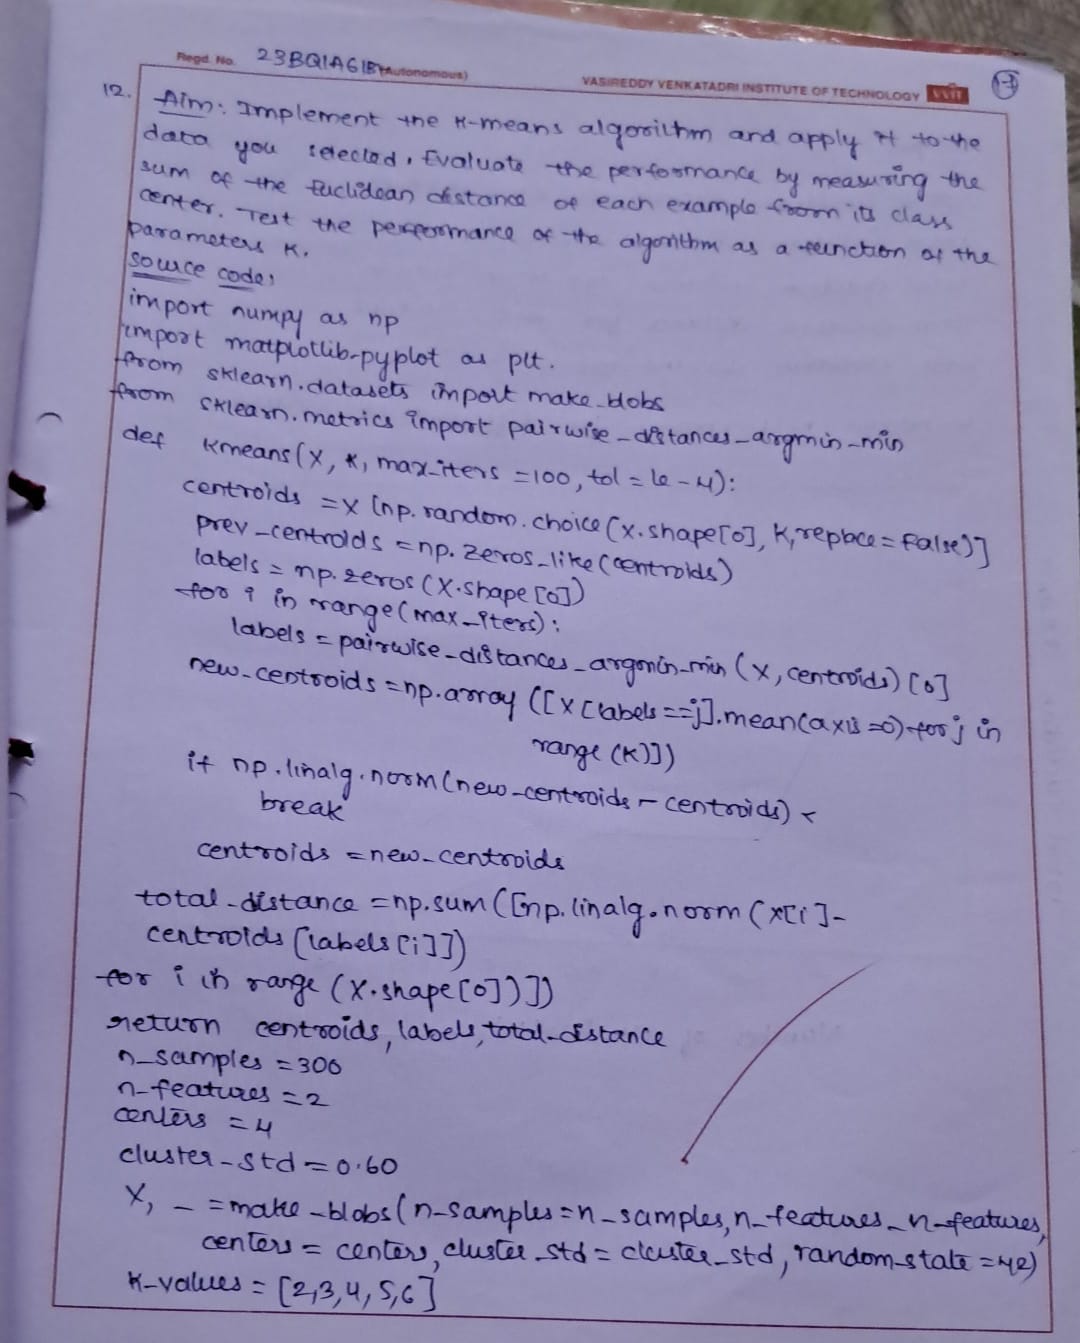 Regd. No. 23BQ1A61B7 (Autonomous)
VASIREDDY VENKATADRI INSTITUTE OF TECHNOLOGY VVIT
17
12. Aim: Implement the K-means algorithm and apply it to the
data you selected. Evaluate the performance by measuring the
sum of the Euclidean distance of each example from its class
center. Test the performance of the algorithm as a function of the
parameters K.
source code:
import numpy as np
import matplotlib.pyplot as plt.
from sklearn.datasets import make_blobs
from sklearn.metrics import pairwise_distances_argmin_min
def kmeans(X, K, max_iters = 100, tol = 1e-4):
centroids = X [np.random.choice(X.shape[0], K, replace = False)]
prev_centroids = np.zeros_like(centroids)
labels = np.zeros(X.shape[0])
for i in range(max_iters):
labels = pairwise_distances_argmin_min (X, centroids) [0]
new_centroids = np.array ([X[labels == j].mean(axis=0) for j in
range (K)])
if np.linalg.norm(new_centroids - centroids) <
break
centroids = new_centroids
total_distance = np.sum ([np.linalg.norm (X[i] -
centroids [labels [i]])
for i in range (X.shape[0])])
return centroids, labels, total_distance
n_samples = 300
n_features = 2
centers = 4
cluster_std = 0.60
X, _ = make_blobs(n_samples = n_samples, n_features_n_features,
centers = centers, cluster_std = cluster_std, random_state = 42)
K_values = [2,3,4,5,6]